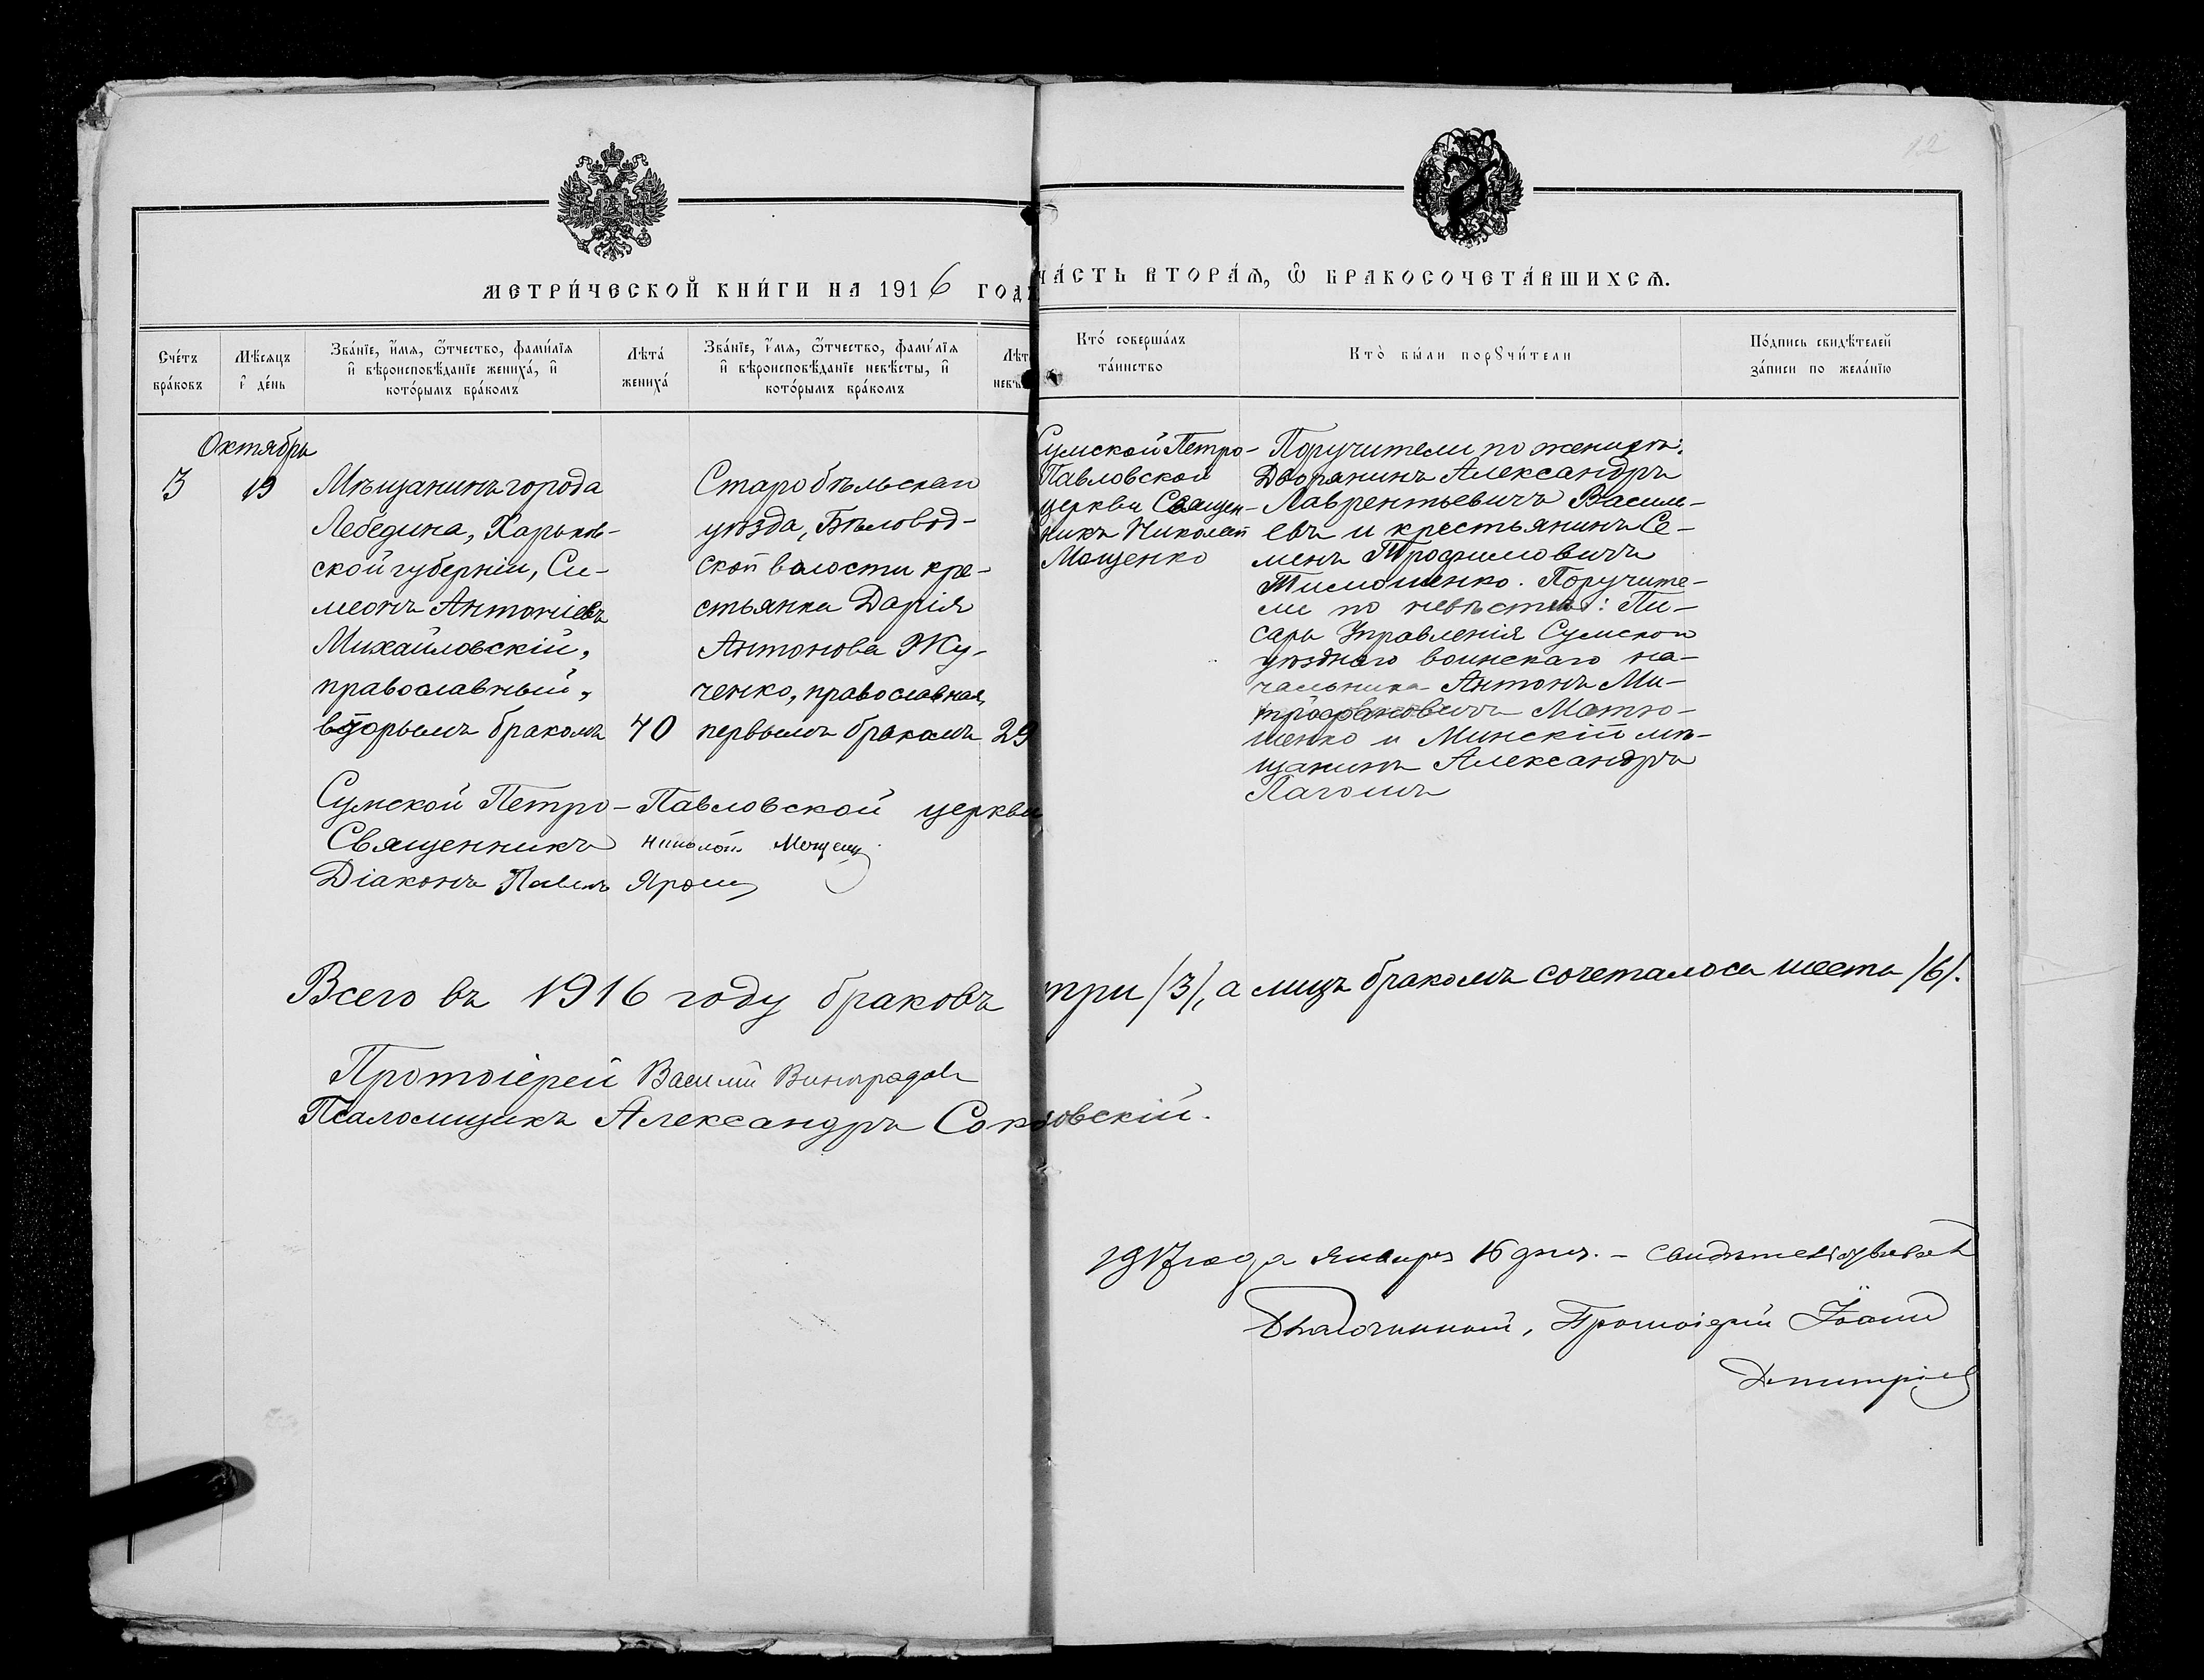 12
МЕТРИ́ЧЕСКОЙ КНИ́ГИ НА 1916 ГОДЪ
ЧА́СТЬ ВТОРА́Ѧ, Ѡ БРАКОСОЧЕТА́ВШИХСѦ.
Сче́тъ
бра́ковъ
Мѣ́сяцъ
и де́нь
Зва́нїе, и́мѧ, ѻ́тчество, фами́лїѧ
и҆ вѣроисповѣ́данїе жениха́, и҆
кото́рымъ бра́комъ
Лѣта́
жениха́
Зва́нїе, и́мѧ, ѻ́тчество, фами́лїѧ
и҆ вѣроисповѣ́данїе невѣ́сты, и҆
кото́рымъ бра́комъ
Лѣт
невѣ
Кто́ соверша́лъ
та́инство
Кто̀ бы́ли порꙋчи́тели
По́дпись свидѣ́телей
за́писи по жела́нїю
Октябрь
3
19
Мѣщанинъ города
Лебедина, Харьков-
ской губерніи, Си-
меонъ Антоніевъ
Михайловскій,
православный,
вторымъ бракомъ
40
Старобѣльскаго
уѣзда, Бѣловод-
ской волости кре-
стьянка Дарія
Антонова Жу-
ченко, православная,
первымъ бракомъ
29
Сумской Петро-
Павловской
церкви Священ-
никъ Николай
Мощенко
Поручители по женихѣ:
Дворянинъ Александръ
Лаврентьевичъ Василь-
евъ и крестьянинъ Се-
менъ Трофимовичъ
Тимошенко. Поручите-
ли по невѣстѣ: Пи-
сарь Управленія Сумского
уѣзднаго воинскаго на-
чальника Антонъ Ми-
трофановичъ Матю-
шенко и Минскій мѣ-
щанинъ Александръ
Сумской Петро-Павловской церкви
Священникъ Николай Мощенко
Діаконъ Павелъ
Всего въ 1916 году браковъ три /3/, а лицъ бракомъ сочеталось шесть /6/.
Протоіерей Василій Виноградовъ
Псаломщикъ Александръ Соколовскій.
1917 года Января 16 дня. - свидѣтельствовалъ
Благочинный, Протоіерей Іоаннъ
Дмитріевъ